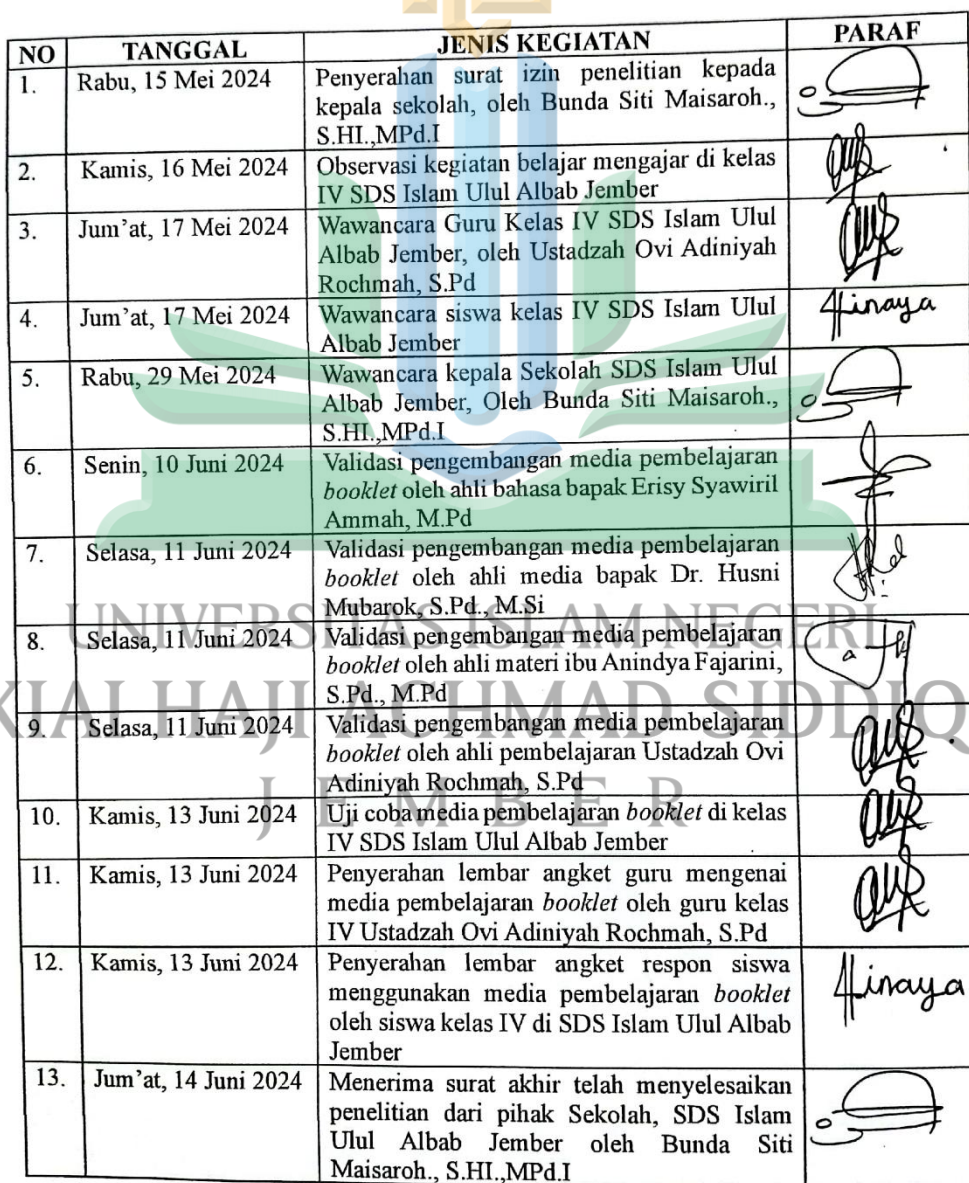 NO TANGGAL JENIS KEGIATAN PARAF
1. Rabu, 15 Mei 2024 Penyerahan surat izin penelitian kepada
kepala sekolah, oleh Bunda Siti Maisaroh.,
S.HI.,MPd.I
2. Kamis, 16 Mei 2024 Observasi kegiatan belajar mengajar di kelas
IV SDS Islam Ulul Albab Jember
3. Jum'at, 17 Mei 2024 Wawancara Guru Kelas IV SDS Islam Ulul
Albab Jember, oleh Ustadzah Ovi Adiniyah
Rochmah, S.Pd
4. Jum'at, 17 Mei 2024 Wawancara siswa kelas IV SDS Islam Ulul Hinaya
Albab Jember
5. Rabu, 29 Mei 2024 Wawancara kepala Sekolah SDS Islam Ulul
Albab Jember, Oleh Bunda Siti Maisaroh.,
S.HI.,MPd.I
6. Senin, 10 Juni 2024 Validasi pengembangan media pembelajaran
booklet oleh ahli bahasa bapak Erisy Syawiril
Ammah, M.Pd
7. Selasa, 11 Juni 2024 Validasi pengembangan media pembelajaran
booklet oleh ahli media bapak Dr. Husni
Mubarok, S.Pd., M.Si
UNIVERSITAS ISLAM NEGERI
8. Selasa, 11 Juni 2024 Validasi pengembangan media pembelajaran
booklet oleh ahli materi ibu Anindya Fajarini,
S.Pd., M.Pd
KIAI HAJI ACHMAD SIDDIQ
9. Selasa, 11 Juni 2024 Validasi pengembangan media pembelajaran
booklet oleh ahli pembelajaran Ustadzah Ovi
Adiniyah Rochmah, S.Pd
JEMBER
10. Kamis, 13 Juni 2024 Uji coba media pembelajaran booklet di kelas
IV SDS Islam Ulul Albab Jember
11. Kamis, 13 Juni 2024 Penyerahan lembar angket guru mengenai
media pembelajaran booklet oleh guru kelas
IV Ustadzah Ovi Adiniyah Rochmah, S.Pd
12. Kamis, 13 Juni 2024 Penyerahan lembar angket respon siswa
menggunakan media pembelajaran booklet Hinaya
oleh siswa kelas IV di SDS Islam Ulul Albab
Jember
13. Jum'at, 14 Juni 2024 Menerima surat akhir telah menyelesaikan
penelitian dari pihak Sekolah, SDS Islam
Ulul Albab Jember oleh Bunda Siti
Maisaroh., S.HI.,MPd.I